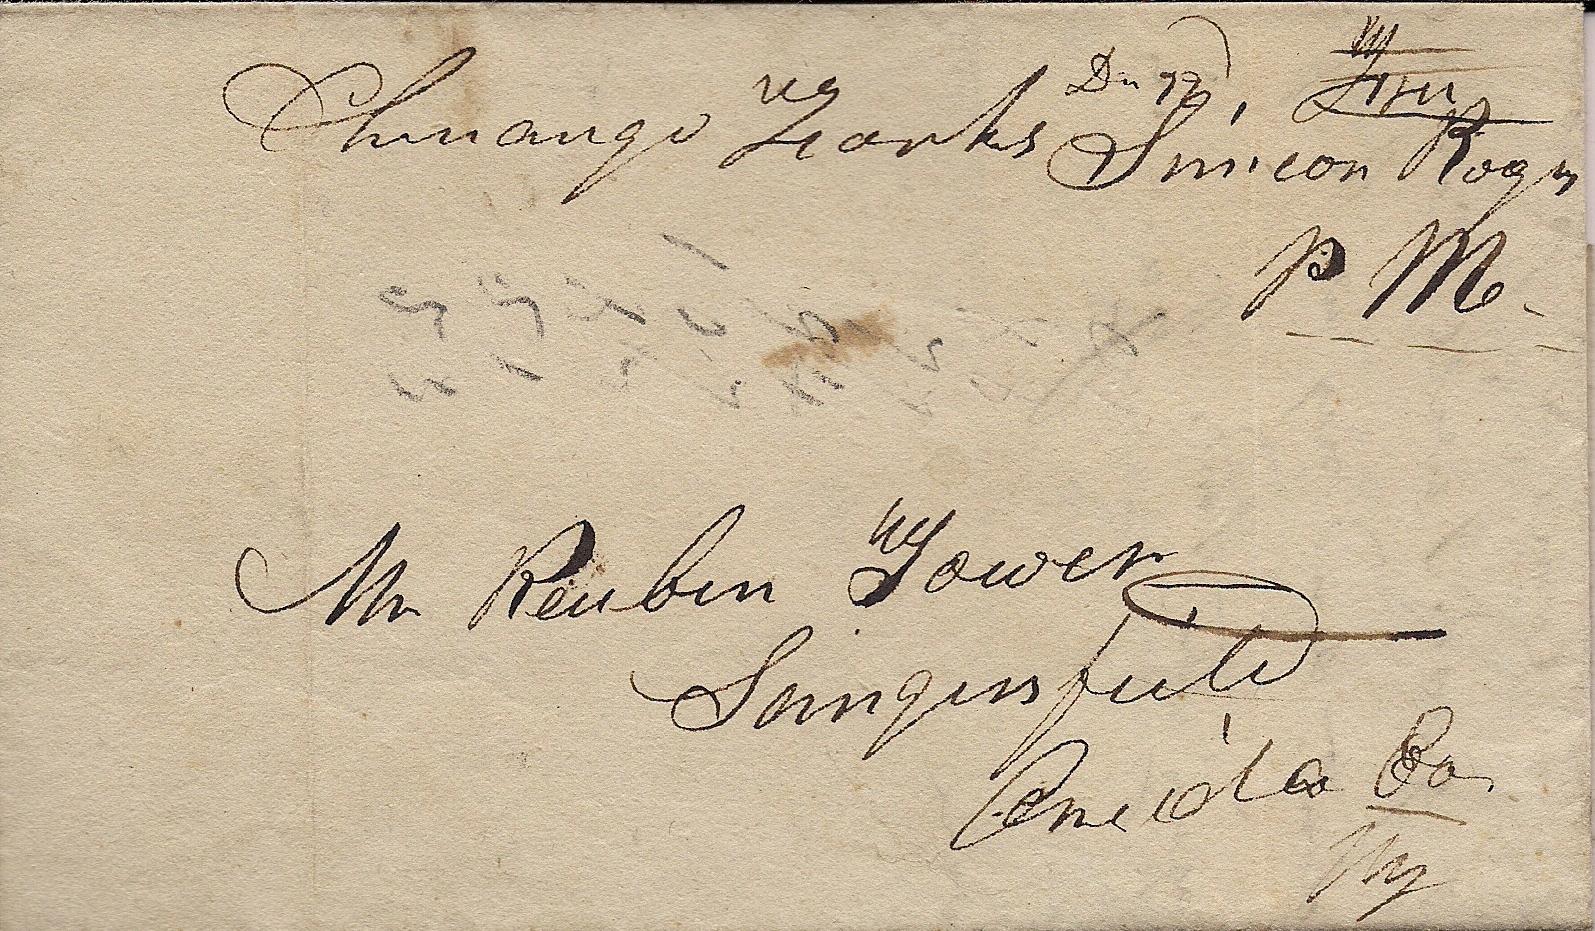 Chenango Forks Dec 19, Free
Simeon Rogers
P M.
Mr Reuben Tower
Sangersfield
Oneida Co
NY